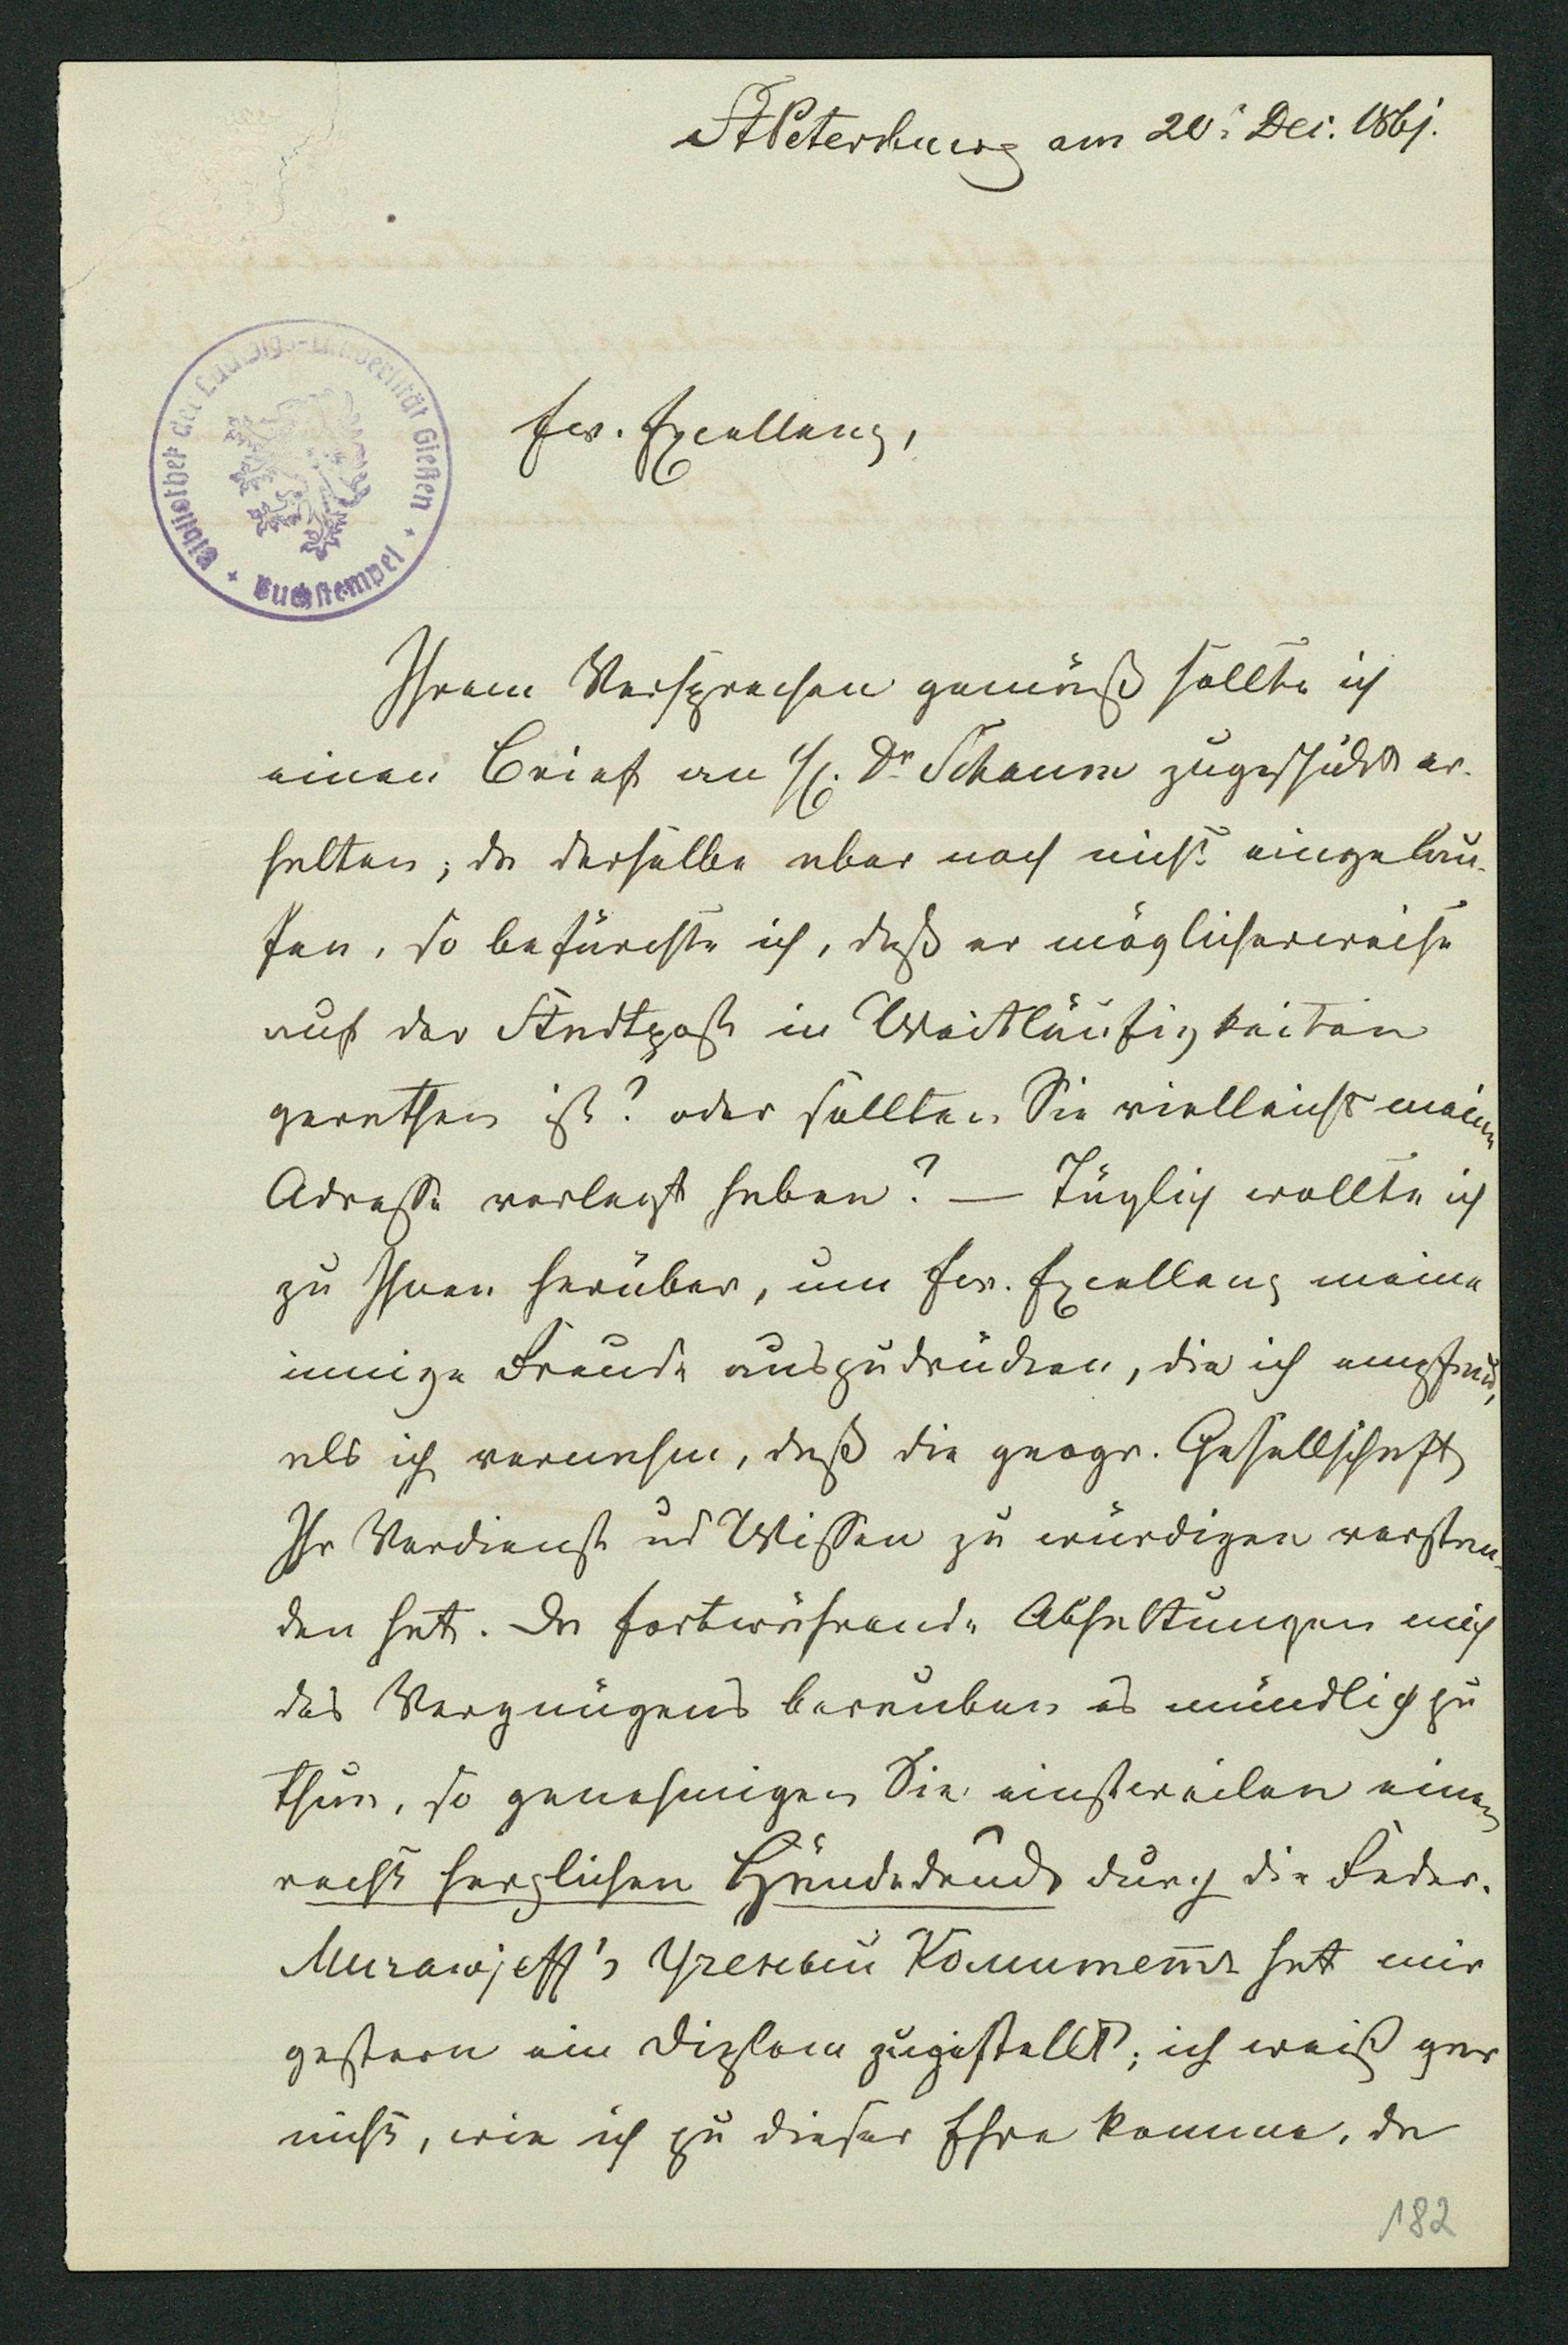 St Petersburg am 20ᵗ Dec. 1861.
Bibliothek der Ludwigs-Universität Gießen
Buchstempel
Ew. Excellenz,
Ihrem Versprechen gemäß sollte ich
einen Brief an H. Dr Schaum zugeschickt er-
halten; da derselbe aber noch nicht eingelau-
fen, so befürchte ich, daß er möglicherweise
auf der Stadtpost in Weitläufigkeiten
gerathen ist? oder sollten Sie vielleicht meine
Adresse verlegt haben? — Täglich wollte ich
zu Ihnen herüber, um Ew. Excellenz meine
innige Freude auszudrücken, die ich empfand,
als ich vernahm, daß die geogr. Gesellschaft
Ihr Verdienst und Wissen zu würdigen verstan-
den hat. Da fortwährende Abhaltungen mich
des Vergnügens berauben es mündlich zu
thun, so genehmigen Sie einstweilen einen
recht herzlichen Händedruck durch die Feder.
Murawjeff's Ученый Комитетъ hat mir
gestern ein Diplom zugestellt; ich weiß gar
nicht, wie ich zu dieser Ehre komme, da
182